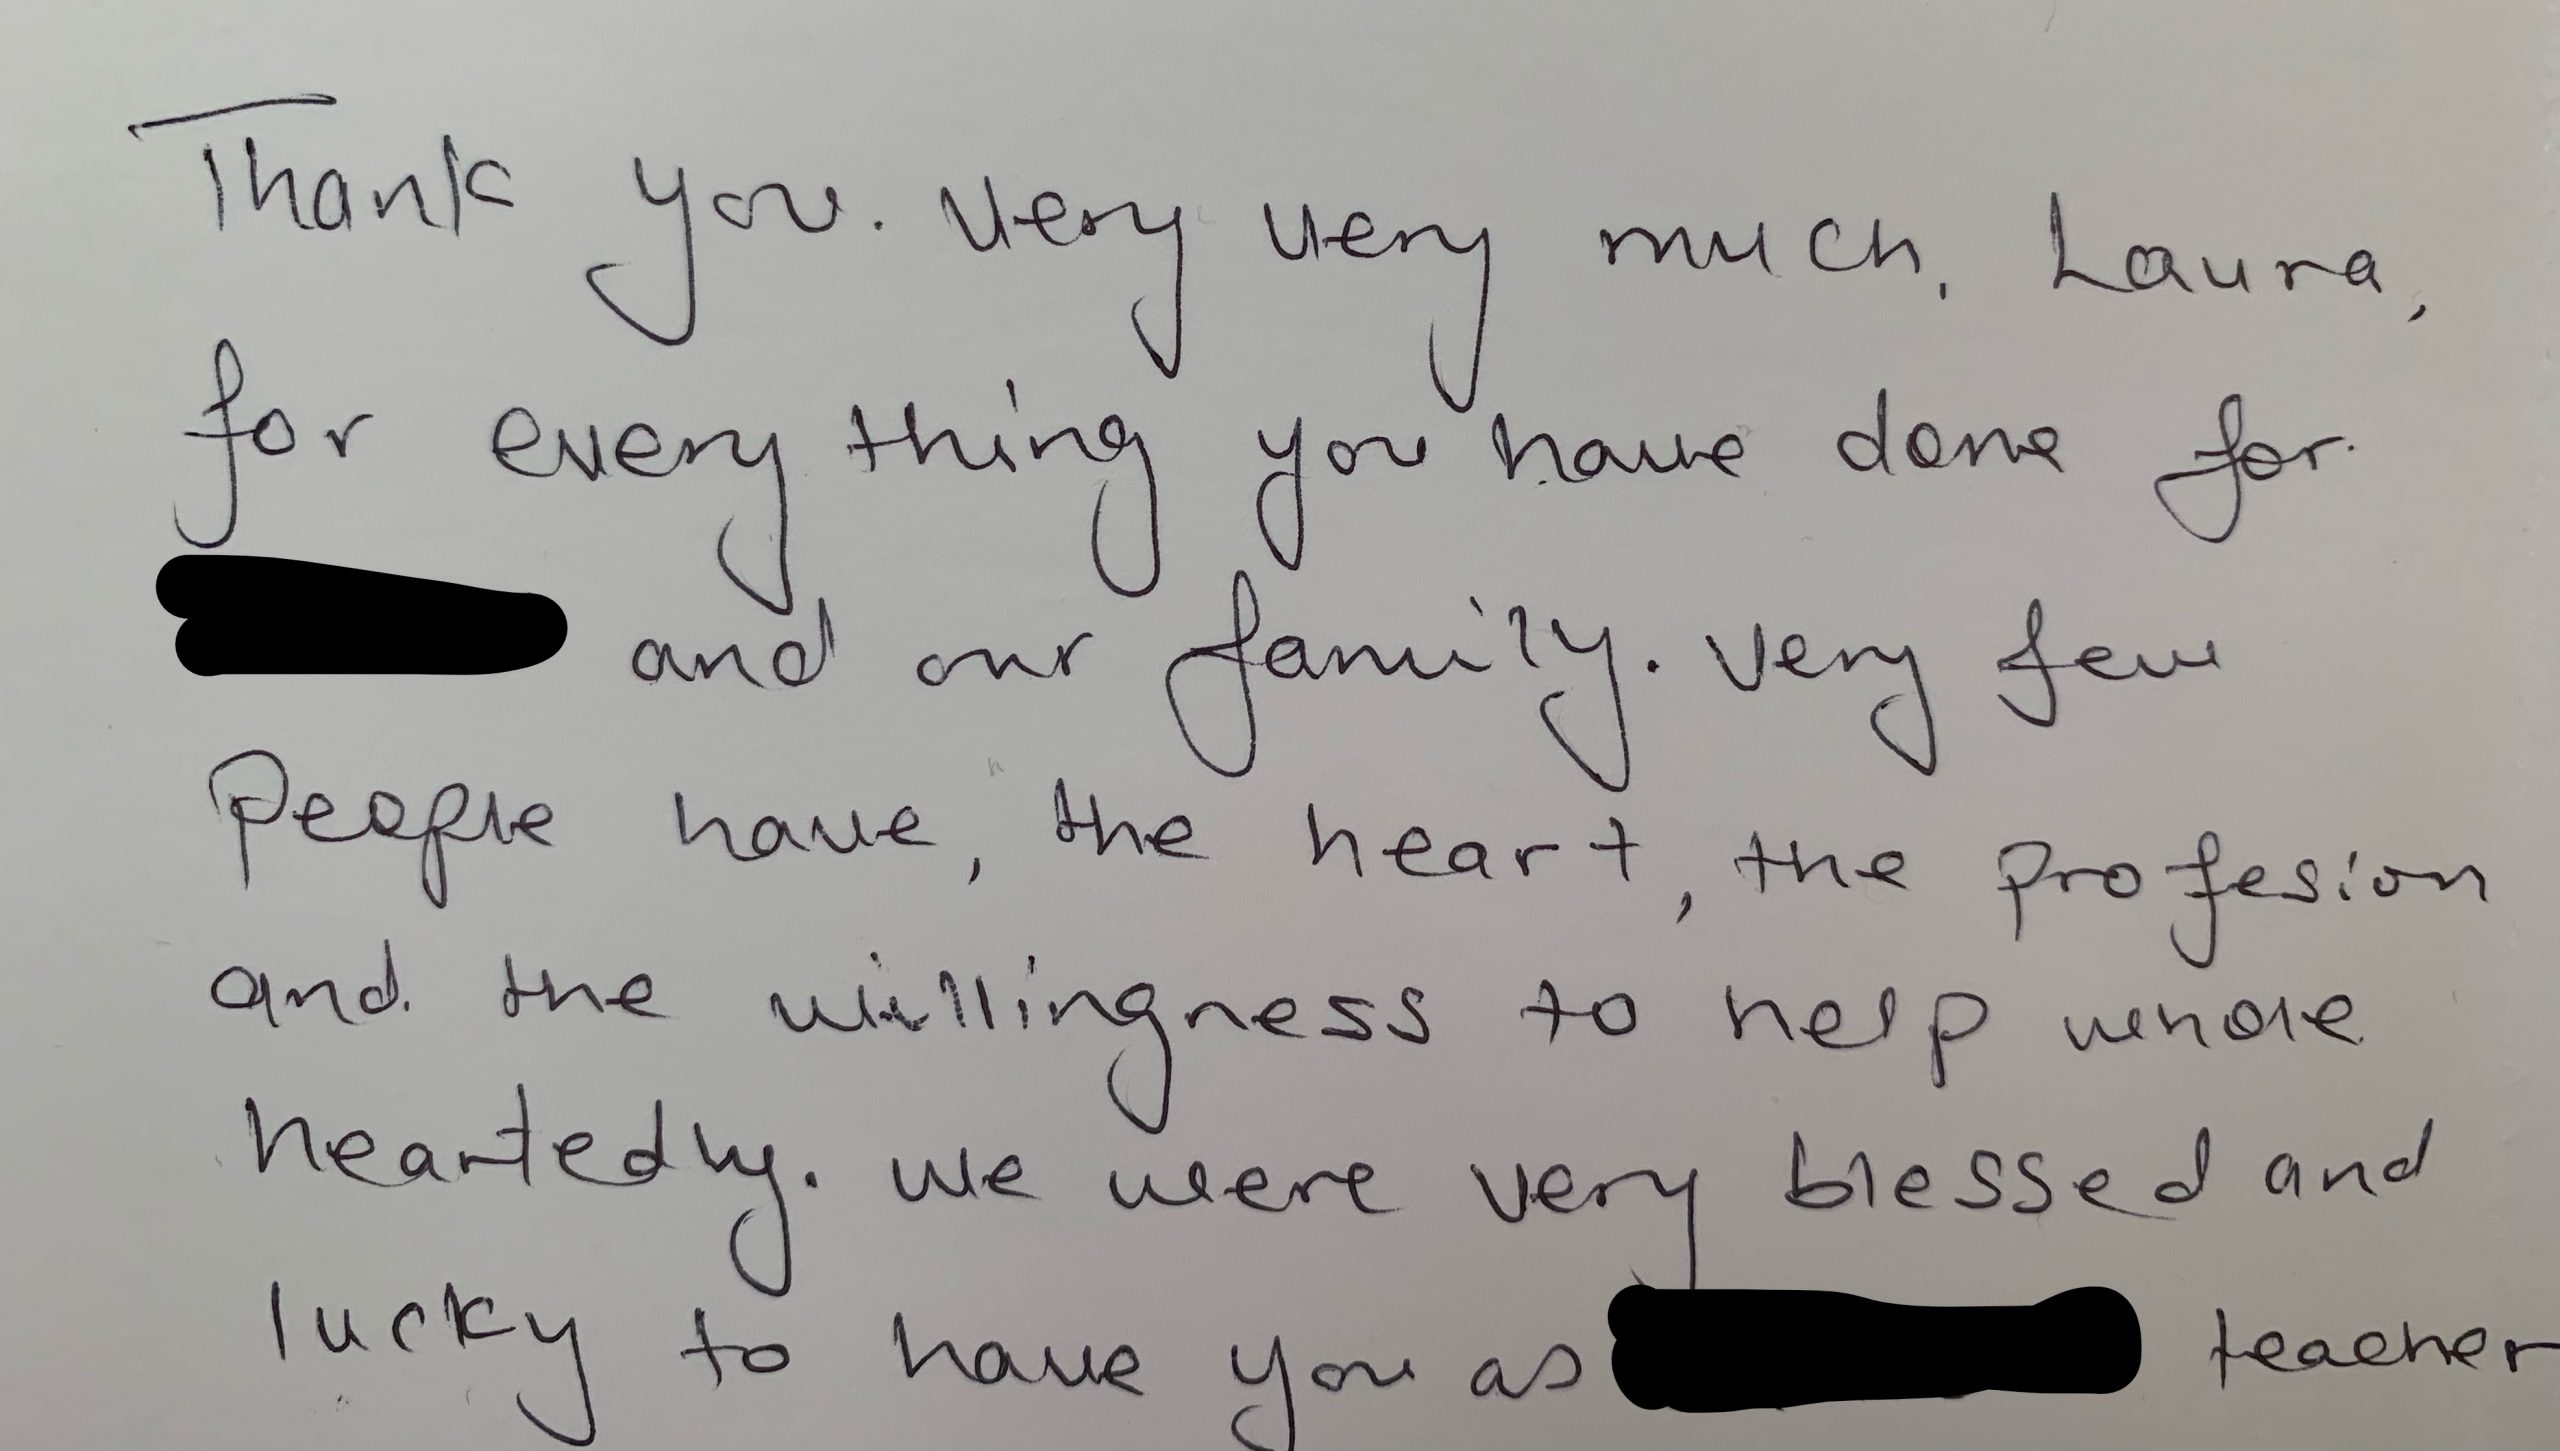 Thank you. Very very much, Laura,
for everything you have done for
and our family. Very few
People have, the heart, the profesion
and the willingness to help whole
heartedly. We were very blessed and
lucky to have you as teacher